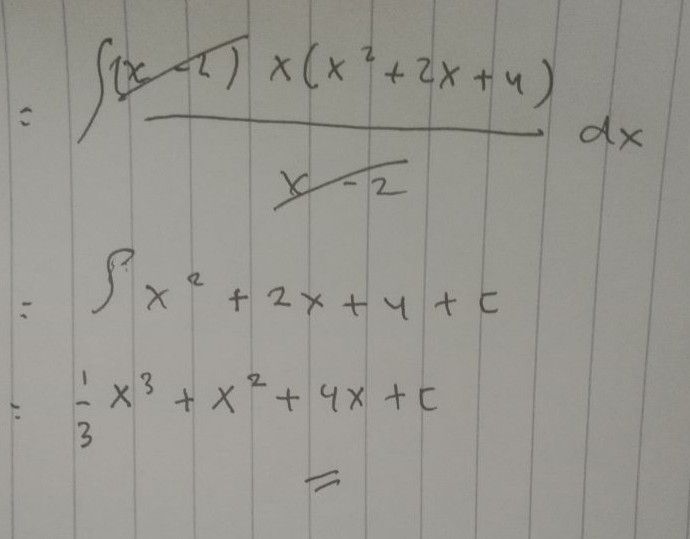 = ∫ (x - 2) x (x² + 2x + 4) dx
x - 2
= ∫ x² + 2x + 4 + c
= 1/3 x³ + x² + 4x + c
=